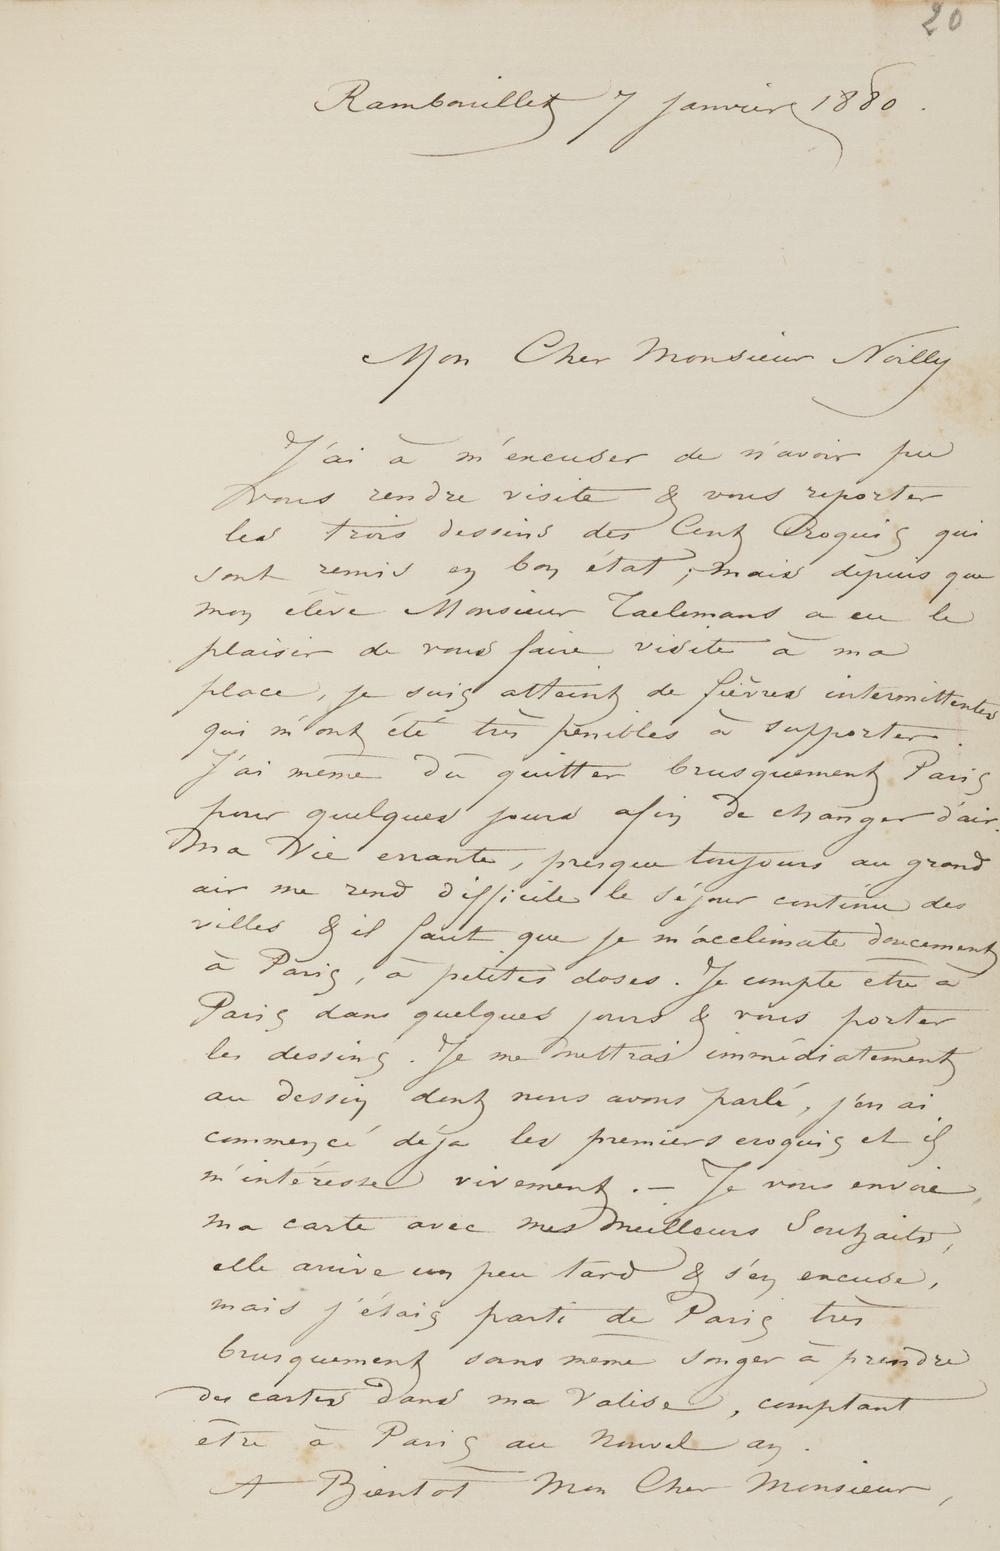 20
Rambouillet 7 janvier 1880.
Mon Cher Monsieur Noilly
J'ai à m'excuser de n'avoir pu
vous rendre visite & vous reporter
les trois dessins des Cent Croquis qui
sont remis en bon état ; mais depuis que
mon élève Monsieur Taelemans a eu le
plaisir de vous faire visite à ma
place, je suis atteint de fièvres intermittentes
qui m'ont été très pénibles à supporter.
J'ai même dû quitter brusquement Paris
pour quelques jours afin de changer d'air.
Ma Vie errante, presque toujours au grand
air me rend difficile le séjour continu des
villes & il faut que je m'acclimate doucement
à Paris, à petites doses. Je compte être à
Paris dans quelques jours & vous porter
les dessins. Je me mettrai immédiatement
au dessin dont nous avons parlé, j'en ai
commencé déja les premiers croquis et il
m'intéresse vivement. — Je vous envoie
ma carte avec mes Meilleurs Souhaits,
elle arrive un peu tard & s'en excuse,
mais j'étais parti de Paris très
brusquement sans même songer à prendre
des cartes dans ma Valise, comptant
être à Paris au Nouvel an.
A Bientôt Mon Cher Monsieur,